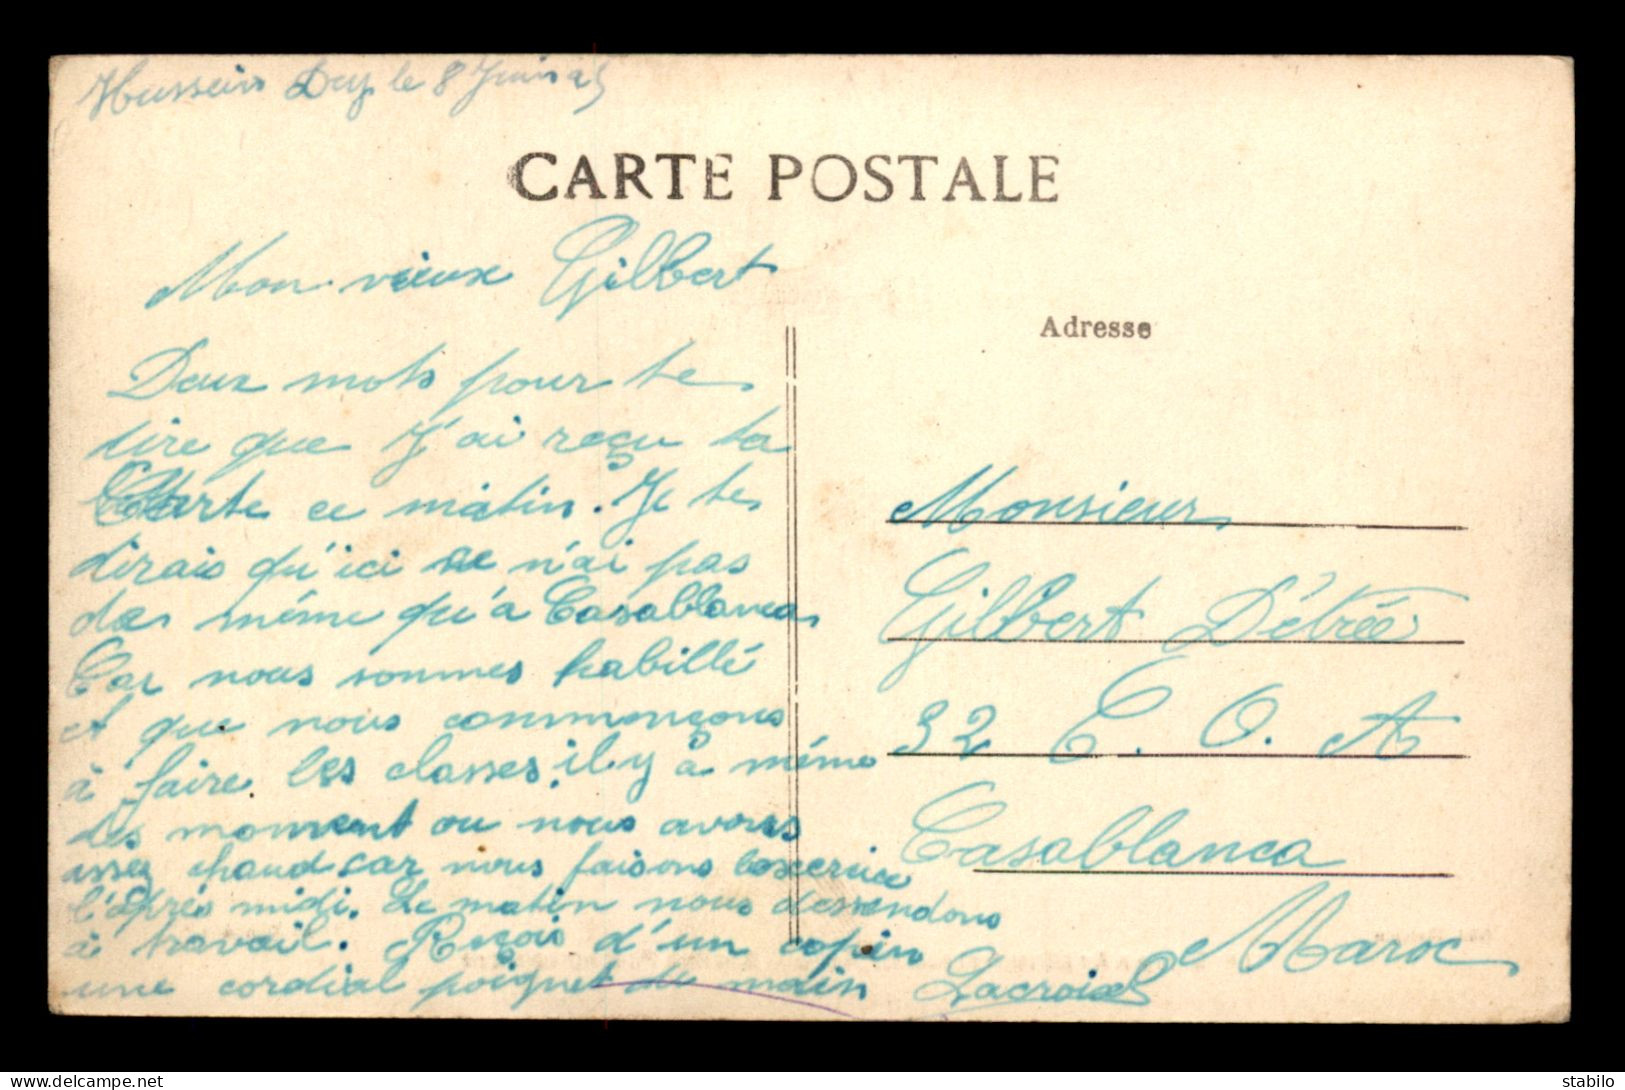 Hussein Dey le 8 Juin
CARTE POSTALE
Mon vieux Gilbert
Deux mots pour te
dire que J'ai reçu ta
Carte ce matin. Je te
dirais qu'ici ce n'ai pas
du même qu'a Casablanca
Car nous sommes habillé
et que nous commençons
à faire les classes. il y à même
des moment ou nous avons
assez chaud car nous faisons l'exercice
l'après midi. Le matin nous dessendons
à travail. Reçois d'un copin
une cordial poignet de main Lacroix
Adresse
Monsieur
Gilbert Détrée
32 C. O. A
Casablanca
Maroc
stabilo